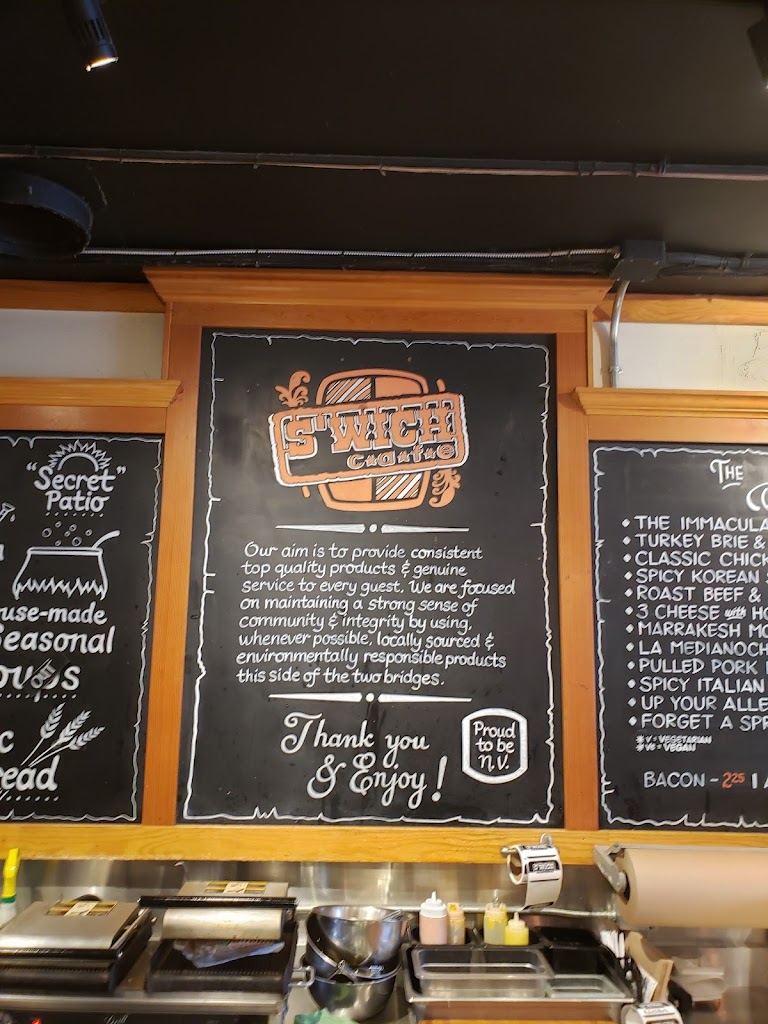 "Secret"
Patio
use-made
Seasonal
ead
S'WICH
c★a★f★e
Our aim is to provide consistent
top quality products & genuine
service to every guest. We are focused
on maintaining a strong sense of
community & integrity by using,
whenever possible, locally sourced &
environmentally responsible products
this side of the two bridges.
Thank you
& Enjoy!
Proud
to be
N.V.
THE
• THE IMMACULA
• TURKEY BRIE &
• CLASSIC CHICK
• SPICY KOREAN
• ROAST BEEF &
• 3 CHEESE with HO
• MARRAKESH MO
• LA MEDIANOCH
• PULLED PORK
• SPICY ITALIAN
• UP YOUR ALLE
• FORGET A SPR
* V = VEGETARIAN
* VE = VEGAN
BACON - 2.25 |